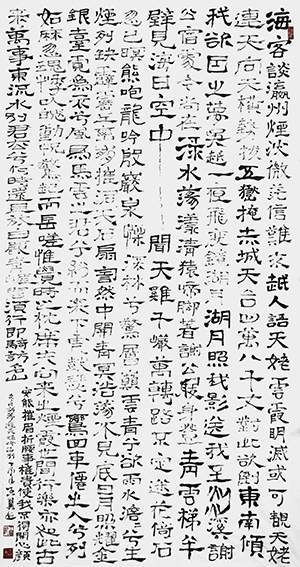 海客談瀛洲煙濤微茫信難求越人語天姥雲霞明滅或可覩天姥
連天向天橫勢拔五嶽掩赤城天台四萬八千丈對此欲倒東南傾
我欲因之夢吳越一夜飛度鏡湖月湖月照我影送我至剡溪謝
公宿處今尚在淥水蕩漾清猿啼脚著謝公屐身登青雲梯半
壁見海日空中聞天雞千巖萬轉路不定迷花倚石
忽已暝熊咆龍吟殷巖泉慄深林兮驚層巔雲青青兮欲雨水澹澹兮生
煙列缺霹靂丘巒崩摧洞天石扇訇然中開青冥浩蕩不見底日月照耀金
銀臺霓為衣兮風為馬雲之君兮紛紛而來下虎鼓瑟兮鸞回車僊之人兮列
如麻忽魂悸以魄動怳驚起而長嗟惟覺時之枕席失向來之煙霞世間行樂亦如此古
來萬事東流水別君去兮何時還且放白鹿青崖間須行即騎訪名山
安能摧眉折腰事權貴使我不得開心顏